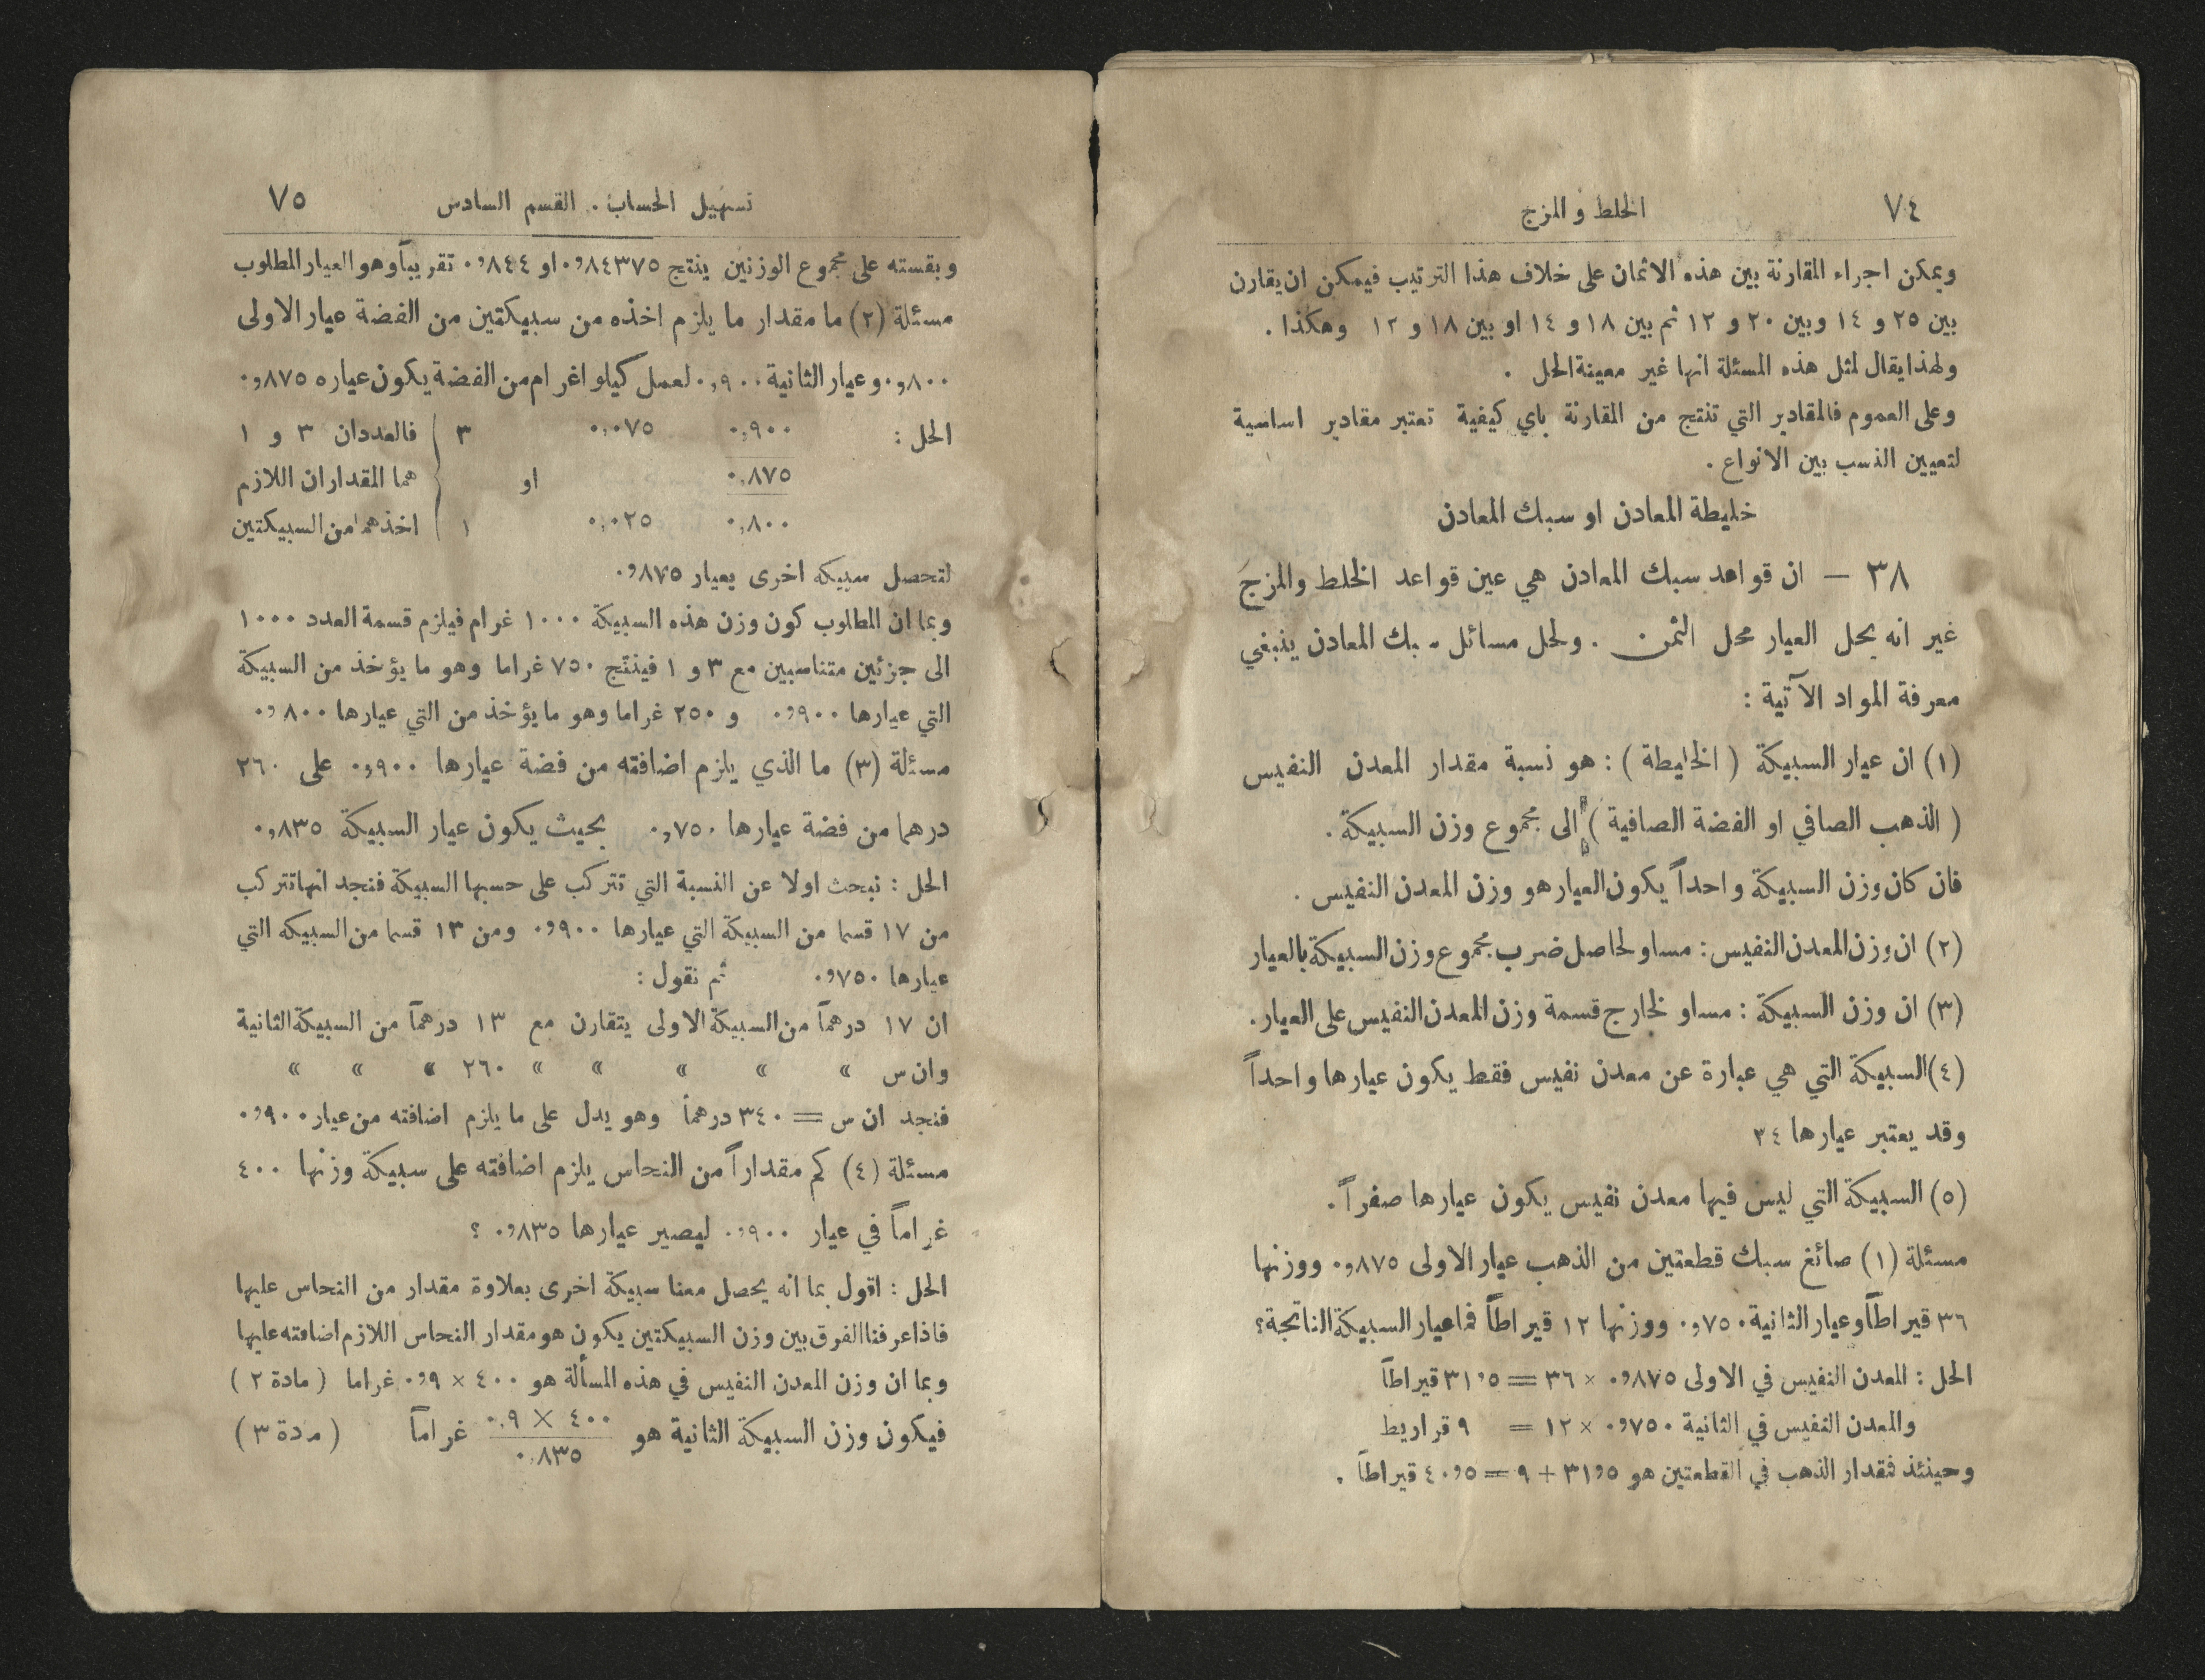 ٧٤
الخلط والمزج
ويمكن اجراء المقارنة بين هذه الاثمان على خلاف هذا الترتيب فيمكن ان يقارن
بين ٢٥ و ١٤ وبين ٢٠ و ١٢ ثم بين ١٨ و ١٤ او بين ١٨ و ١٢ وهكذا .
ولهذا يقال لمثل هذه المسئلة انها غير معينة الحل .
وعلى العموم فالمقادير التي تنتج من المقارنة باي كيفية تعتبر مقادير اساسية
لتعيين النسب بين الانواع .
خليطة المعادن او سبك المعادن
٣٨ — ان قواعد سبك المعادن هي عين قواعد الخلط والمزج
غير انه يحل العيار محل الثمن . ولحل مسائل سبك المعادن ينبغي
معرفة المواد الآتية :
(١) ان عيار السبيكة ( الخليطة ) : هو نسبة مقدار المعدن النفيس
( الذهب الصافي او الفضة الصافية ) الى مجموع وزن السبيكة .
فان كان وزن السبيكة واحداً يكون العيار هو وزن المعدن النفيس .
(٢) ان وزن المعدن النفيس : مساو لحاصل ضرب مجموع وزن السبيكة بالعيار
(٣) ان وزن السبيكة : مساو لخارج قسمة وزن المعدن النفيس على العيار .
(٤) السبيكة التي هي عبارة عن معدن نفيس فقط يكون عيارها واحداً
وقد يعتبر عيارها ٢٤
(٥) السبيكة التي ليس فيها معدن نفيس يكون عيارها صفراً .
مسئلة (١) صائغ سبك قطعتين من الذهب عيار الاولى ٠,٨٧٥ ووزنها
٣٦ قيراطاً وعيار الثانية ٠,٧٥٠ ووزنها ١٢ قيراطاً فما عيار السبيكة الناتجة؟
الحل : المعدن النفيس في الاولى ٠,٨٧٥ × ٣٦ = ٣١,٥ قيراطاً
والمعدن النفيس في الثانية ٠,٧٥٠ × ١٢ = ٩ قراريط
وحينئذ فمقدار الذهب في القطعتين هو ٣١,٥ + ٩ = ٤٠,٥ قيراطاً .
تسهيل الحساب . القسم السادس
٧٥
وبقسمته على مجموع الوزنين ينتج ٠,٨٤٣٧٥ او ٠,٨٤٤ تقريباً وهو العيار المطلوب
مسئلة (٢) ما مقدار ما يلزم اخذه من سبيكتين من الفضة عيار الاولى
٠,٨٠٠ وعيار الثانية ٠,٩٠٠ لعمل كيلو اغرام من الفضة يكون عياره ٠,٨٧٥
الحل : ٠,٩٠٠ ٠,٠٧٥ ٣ فالعددان ٣ و ١
٠,٨٧٥ او هما المقداران اللازم
٠,٨٠٠ ٠,٠٢٥ ١ اخذهما من السبيكتين
لتحصل سبيكه اخرى بعيار ٠,٨٧٥
وبما ان المطلوب كون وزن هذه السبيكة ١٠٠٠ غرام فيلزم قسمة العدد ١٠٠٠
الى جزئين متناسبين مع ٣ و ١ فينتج ٧٥٠ غراما وهو ما يؤخذ من السبيكة
التي عيارها ٠,٩٠٠ و ٢٥٠ غراما وهو ما يؤخذ من التي عيارها ٠,٨٠٠
مسئلة (٣) ما الذي يلزم اضافته من فضة عيارها ٠,٩٠٠ على ٢٦٠
درهما من فضة عيارها ٠,٧٥٠ بحيث يكون عيار السبيكة ٠,٨٣٥
الحل : نبحث اولا عن النسبة التي تتركب على حسبها السبيكة فنجد انها تتركب
من ١٧ قسما من السبيكة التي عيارها ٠,٩٠٠ ومن ١٣ قسما من السبيكه التي
عيارها ٠,٧٥٠ ثم نقول :
ان ١٧ درهماً من السبيكة الاولى يتقارن مع ١٣ درهماً من السبيكة الثانية
وان س » » » » » ٢٦٠ » » »
فنجد ان س = ٣٤٠ درهماً وهو يدل على ما يلزم اضافته من عيار ٠,٩٠٠
مسئلة (٤) كم مقداراً من النحاس يلزم اضافته على سبيكة وزنها ٤٠٠
غراماً في عيار ٠,٩٠٠ ليصير عيارها ٠,٨٣٥ ؟
الحل : اقول بما انه يحصل معنا سبيكة اخرى بعلاوة مقدار من النحاس عليها
فاذا عرفنا الفرق بين وزن السبيكتين يكون هو مقدار النحاس اللازم اضافته عليها
وبما ان وزن المعدن النفيس في هذه المسألة هو ٤٠٠ × ٠,٩ غراما ( مادة ٢ )
فيكون وزن السبيكة الثانية هو ٤٠٠ × ٠,٩ / ٠,٨٣٥ غراماً ( مدة ٣ )